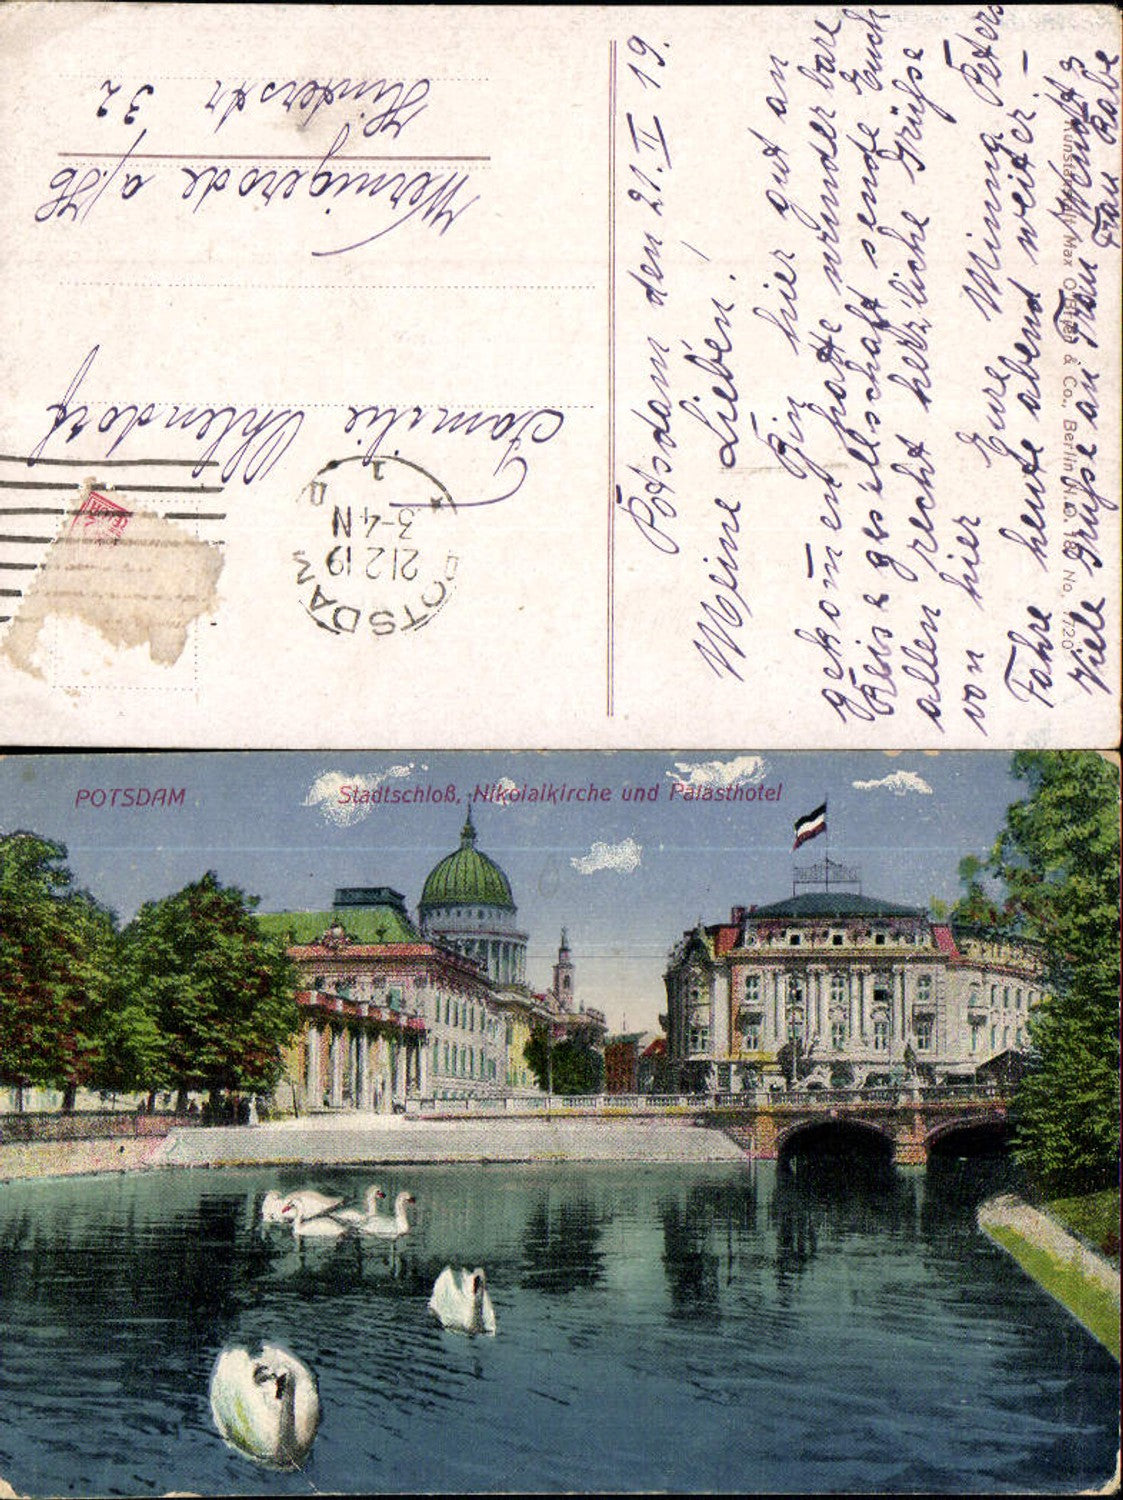 Potsdam den 21. II 19.
Meine Lieben!
Bin hier gut an
gekomen hatte wunderbare
Reise gesellschaft sende Euch
allen recht herzliche Grüße
von hier Eure Minna Peters
Fahre heute abend weiter –
Viele Grüße an Frau
Frau Rabe
Kunstanstalt Max O'Brien & Co., Berlin N.O. 18 No. 1720
POTSDAM
21.2.19
3-4 N
1
Familie Uhlendorf
Wernigerode a/H
Hinterstr 32
POTSDAM
Stadtschloß, Nikolaikirche und Palasthotel